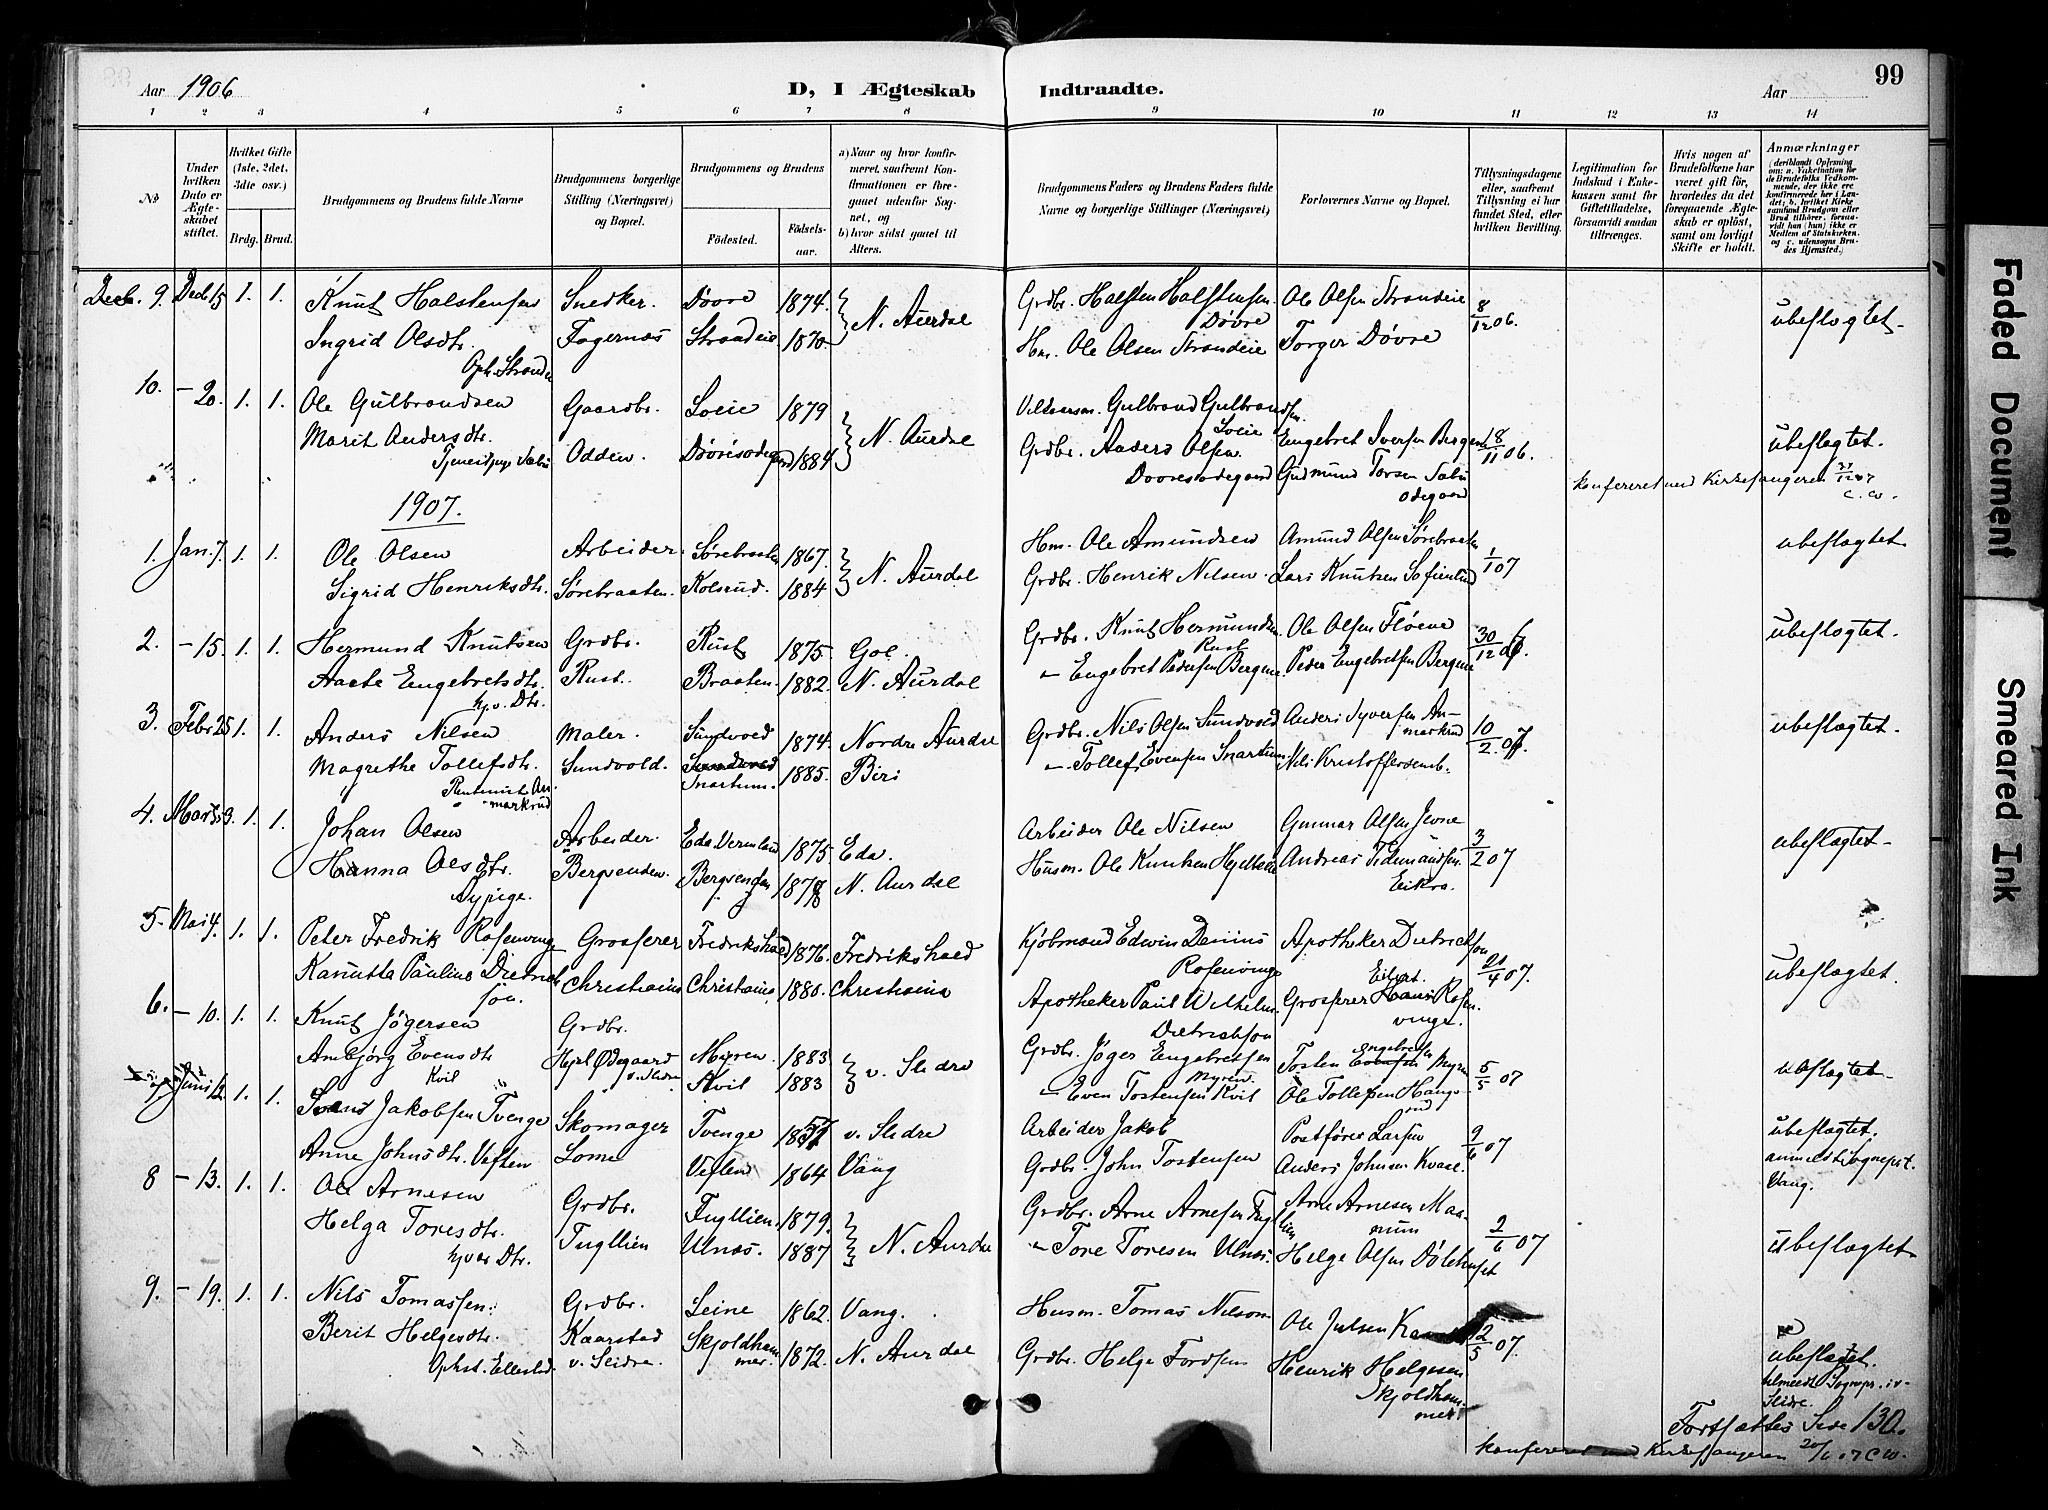 Aar 1906
D, I Ægteskab
Indtraadte.
Aar
99
1 2 3 4 5 6 7 8 9 10 11 12 13 14
No
Under hvilken Dato er Ægteskabet stiftet.
Hvilket Gifte (1ste, 2det, 3die osv.)
Brdg. Brud.
Brudgommens og Brudens fulde Navne
Brudgommens borgerlige Stilling (Næringsvei) og Bopæl.
Brudgommens og Brudens
Fødested.
Fødselsaar.
a) Naar og hvor konfirmeret, saafremt Konfirmationen er foregaaet udenfor Sognet, og
b) hvor sidst gaaet til Alters.
Brudgommens Faders og Brudens Faders fulde Navne og borgerlige Stillinger (Næringsvei)
Forlovernes Navne og Bopæl.
Tillysningsdagene eller, saafremt Tillysning ei har fundet Sted, efter hvilken Bevilling.
Legitimation for Indskud i Enkekassen samt for Giftetilladelse, forsaavidt saadan tiltrænges.
Hvis nogen af Brudefolkene har været gift før, hvorledes da det foregaaende Ægteskab er opløst, samt om lovligt Skifte er holdt.
Anmærkninger
(deriblandt Oplysning om: a. Vakcination for de Brudefolks Vedkommende, der ikke ere konfirmerede her i Landet, b. hvilket Kirkesamfund Brudgom eller Brud tilhører, forsaavidt han (hun) ikke er Medlem af Statskirken, og c. udensogns Brudes Hjemsted.)
Decb. 9. Decb. 15 1. 1. Knut Halstensen Snedker. Døvre 1874. N. Aurdal Grdbr. Halsten Halstensen Døvre Ole Olsen Strandeie 8/12 06. ubeslægtet
Ingrid Olsdtr. Fagernæs Strandeie 1870. Hm. Ole Olsen Strandeie Torger Døvre
Oph. Stranden
10. - 20. 1. 1. Ole Gulbrandsen Gaardbr. Loeie 1879 N. Aurdal Gulbrand Gulbrandsen Loeie Engebret Iversen Bergene 18/11 06. ubeslægtet.
Marit Andersdtr. Odden. 1884 Grdbr. Anders Olsen Gudmund Torsen Sæbu
ødegaard
konfereret med Kirkesangeren C.W.
1907.
1. Jan. 7. 1. 1. Ole Olsen Arbeider. Sørebraaten 1867. N. Aurdal Hm. Ole Amundsen Amund Olsen Sørebraaten 1/1 07 ubeslægtet
Sigrid Henriksdtr. Sørebraaten. Kolsrud. 1884 Grdbr. Henrik Nilsen Lars Knutsen Sofienlund
2. - 15. 1. 1. Hermund Knutsen Grdbr. Rust 1875. Gol. Grdbr. Knut Hermundsen Rust Ole Olsen Fløene 30/12 06. ubeslægtet.
Aaste Engebretsdtr. Rust. Braaten. 1882. N. Aurdal - Engebret Pedersen Bergene Peder Engebretsen Bergene
hj.v. Dtr.
3. Febr 25 1. 1. Anders Nilsen Maler. Sundvold 1874. Nordre Aurdal Grdbr. Nils Olsen Sundvold Anders Syversen Anmarkrud 10/2. 07. ubeslægtet.
Magrethe Tollefsdtr. Sundvold. Snartum. 1885. Biri - Tollef Evensen Snartum Nils Kristoffersen
4. Marts 3. 1. 1. Johan Olsen Arbeider. Eda Vermland 1875 Eda. Arbeider Ole Nilsen Gunnar Olsen Jevne 3/2 07 ubeslægtet
Hanna Olsdtr. Bergsenden. Bergsenden 1878 N. Aurdal Husm. Ole Knutsen Andreas Tidemandsen Eikra.
Sypige.
5. Mai 4. 1. 1. Peter Fredrik Rosenvinge Grosserer Fredrikshald 1876. Fredrikshald Kjøbmand Edwin Denius Rosenvinge Apotheker Dietrichson 21/4 07. ubeslægtet.
Kanutta Pauline Dietrichson Christiania Christiania 1880. Christiania Apotheker Paul Wilhelm Dietrichson Grosserer Hans Rosenvinge.
6. - 10. 1. 1. Knut Jøgersen Grdbr. Myren. 1883 v. Slidre Grdbr. Jøger Engebretsen Myren. Tosten Engebretsen Myren 5/5 07 ubeslægtet
Ambjørg Evensdtr Kvil Ødegaard v. Slidre Kvil 1883 - Even Tostensen Kvil Ole Tollefsen
7. Juni 12. 1. 1. Jakobsen Tvenge Skomager Tvenge v. Slidre Arbeider Jakob Postfører Larsen 9/6 07 ubeslægtet.
Anne Johnsdtr. Lome 1864 Vang Grdbr. John Tostensen Anders Johnsen Kvale. anmeldt Sognepr. i Vang.
8 - 13. 1. 1. Ole Arnesen Grdbr. Fugllien. 1879. N. Aurdal Grdbr. Arne Arnesen Fugllien Arne Arnesen Maanum 2/6 07 ubeslægtet
Helga Toresdtr. Fugllien Ulnæs. 1887 - Tore Toresen Ulnæs. Helge Olsen
hjv. Dtr.
9. - 19. 1. 1. Nils Tomassen. Grdbr. Leine 1862. Vang. Husm. Tomas Nilsen Ole Julsen 12/5 07. ubeslægtet.
Berit Helgesdtr. Kaarstad v. Slidre. Skjoldhammer. 1872. N. Aurdal Grdbr. Helge Tordsen Henrik Helgesen Skjoldhammer
Ophst. Ellestad
tilmeldt Sognepr. i v. Slidre.
Fortsættes Side 130.
konfereret med Kirkesangeren 20/6 07 C.W.
Faded Document
Smeared Ink